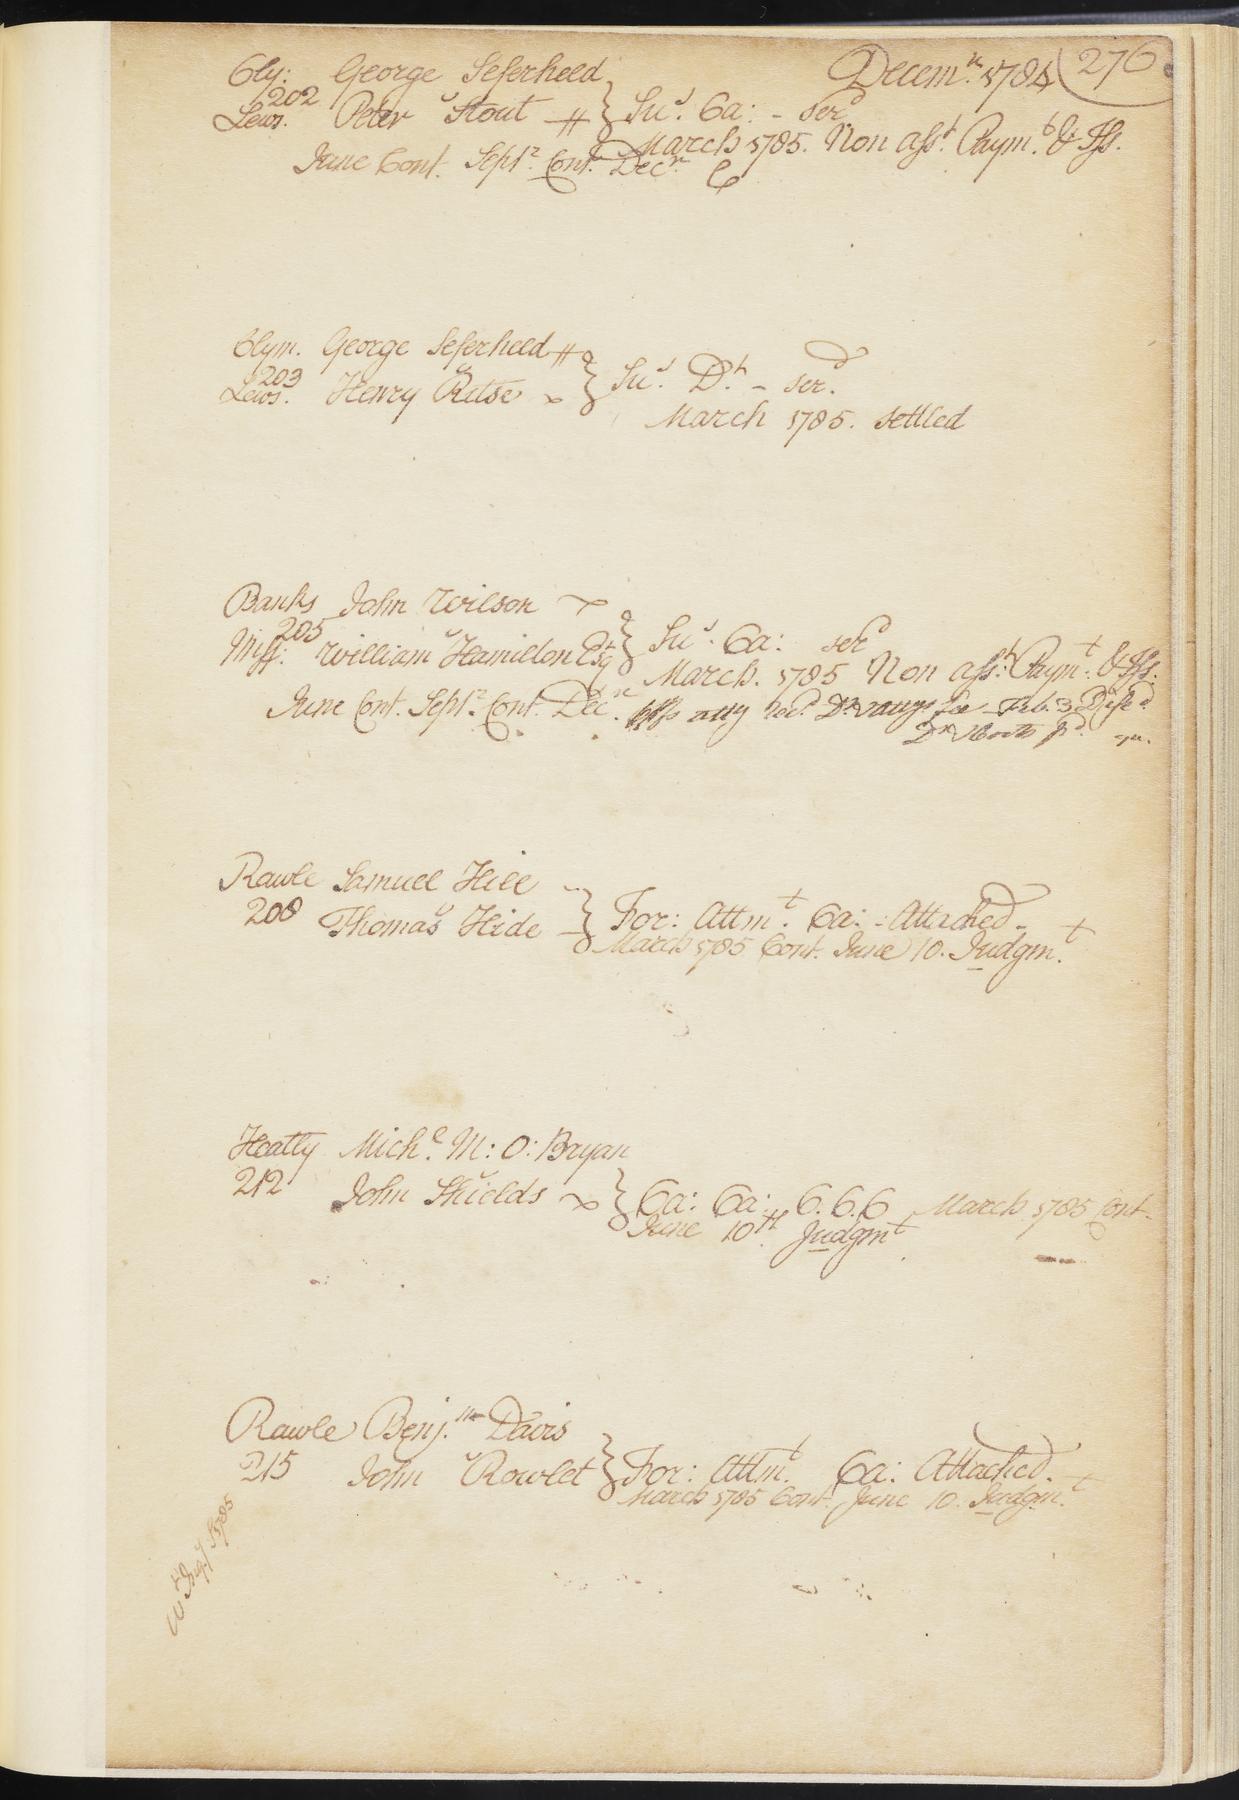 Decem.r 1784 276
Cly: George Seferheld
202
Lews. Peter Stout } Su.s Ca: - ser.d
March 1785. Non ass.t Paym.t & Iss.
June Cont. Sept.r Cont. Dec.r C
Clym. George Seferheld
203
Lews. Henry Ritse } Su.s D.t - ser.d
March 1785. settled
Banks John Wilson
205
Miff: William Hamilton Esq.r } Su.s Ca: ser.d
March. 1785 Non ass.t Paym.t & Iss.
June Cont. Sept.r Cont. Dec.r atty rec.d fee Feb. 3
Rawle Samuel Hill
208 Thomas Hide } For: Attm.t Ca: - Attached -
March 1785 Cont. June 10. Judgm.t
Heatly Mich.l M: O: Bryan
212 John Shields } Ca: Ca: C.C.C March 1785 Cont.
June 10th Judgm.t
Rawle Benj.n Davis
215 John Rowlet } For: Attm.t Ca: Attached.
March 1785 Cont. June 10. Judgm.t